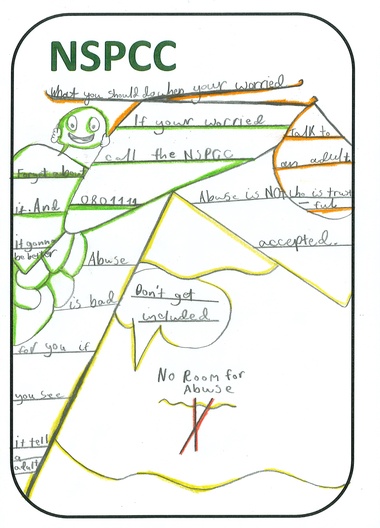 NSPCC
What you should do when your worried
If your worried
call the NSPCC
0801111
Talk to
an adult
who is trust
-ful
Forget about
it. And
it gonna
be better
Abuse is NOT
accepted.
Abuse
is bad
for you if
you see
it tell
a
adult
Don't get
included
No Room for
Abuse